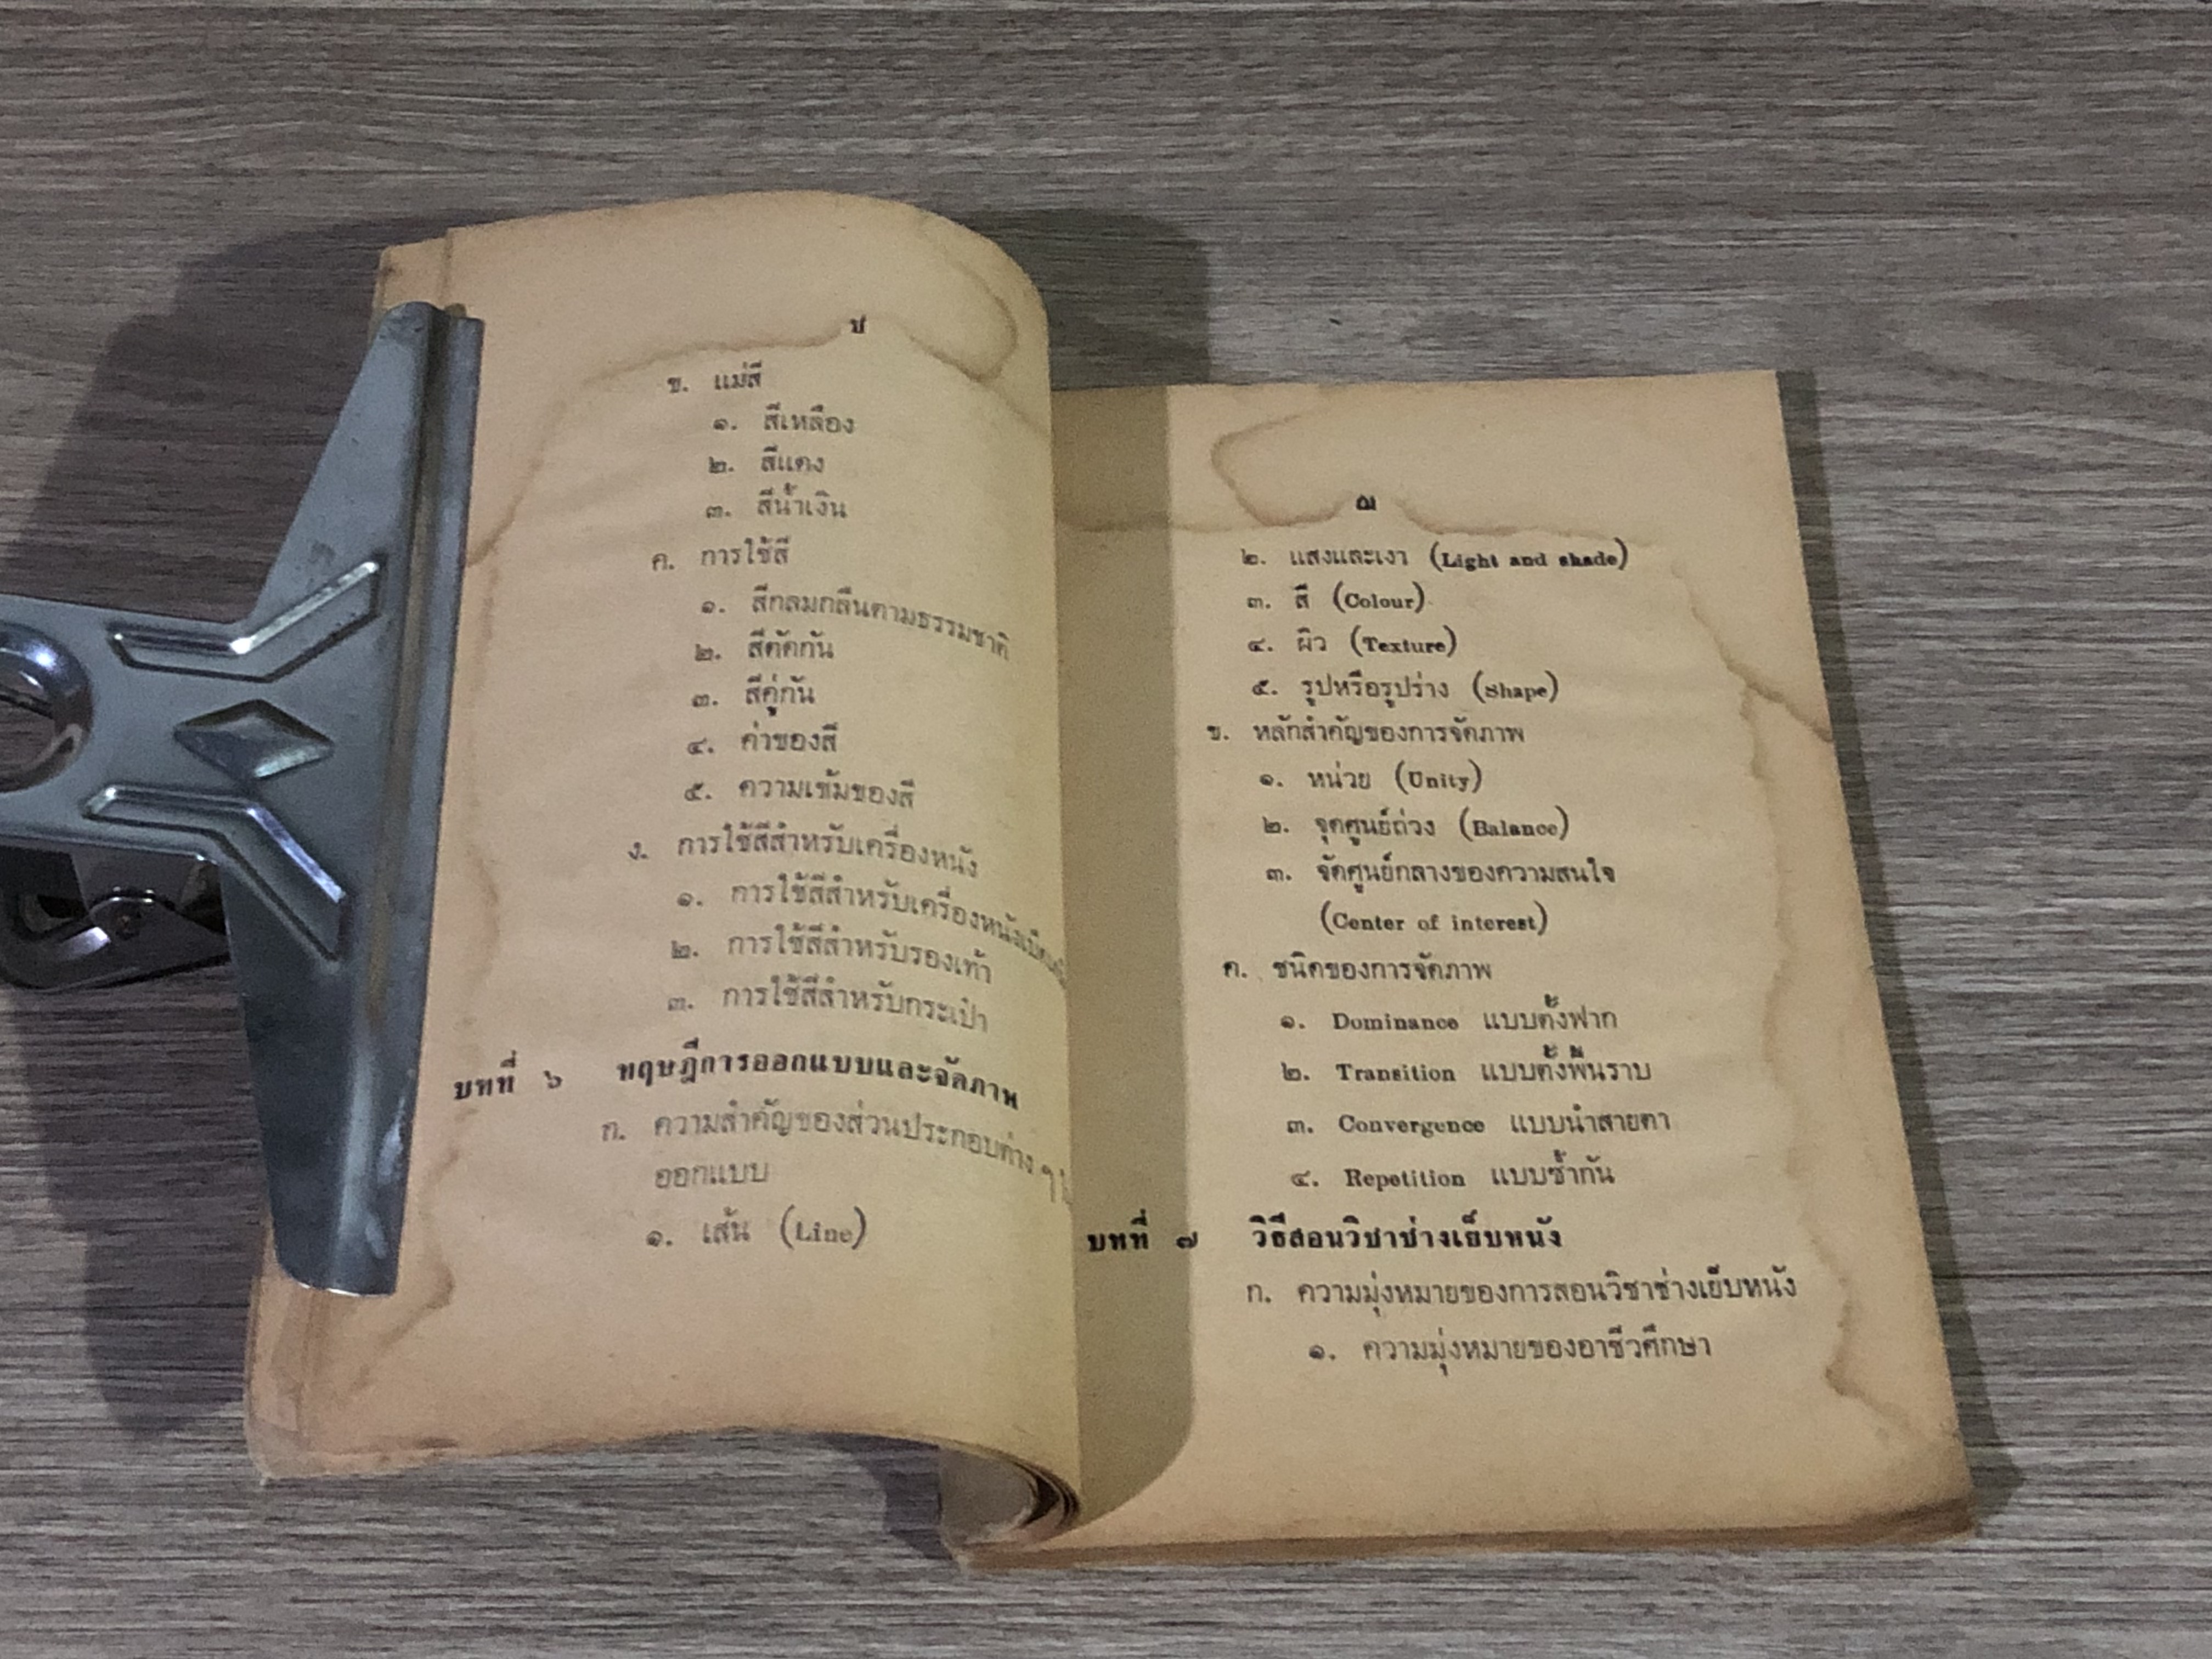 ข. แม่สี
๑. สีเหลือง
๒. สีแดง
๓. สีน้ำเงิน
ค. การใช้สี
๑. สีกลมกลืนตามธรรมชาติ
๒. สีตัดกัน
๓. สีคู่กัน
๔. ค่าของสี
๕. ความเข้มของสี
ง. การใช้สีสำหรับเครื่องหนัง
๑. การใช้สีสำหรับเครื่องหนัง
๒. การใช้สีสำหรับรองเท้า
๓. การใช้สีสำหรับกระเป๋า
บทที่ ๖ ทฤษฎีการออกแบบและจัดภาพ
ก. ความสำคัญของส่วนประกอบต่าง ๆ
ออกแบบ
๑. เส้น (Line)
๒. แสงและเงา (Light and shade)
๓. สี (Colour)
๔. ผิว (Texture)
๕. รูปหรือรูปร่าง (Shape)
ข. หลักสำคัญของการจัดภาพ
๑. หน่วย (Unity)
๒. จุดศูนย์ถ่วง (Balance)
๓. จัดศูนย์กลางของความสนใจ
(Center of interest)
ค. ชนิดของการจัดภาพ
๑. Dominance แบบตั้งฟาก
๒. Transition แบบตั้งพื้นราบ
๓. Convergence แบบนำสายตา
๔. Repetition แบบซ้ำกัน
บทที่ ๗ วิธีสอนวิชาช่างเย็บหนัง
ก. ความมุ่งหมายของการสอนวิชาช่างเย็บหนัง
๑. ความมุ่งหมายของอาชีวศึกษา